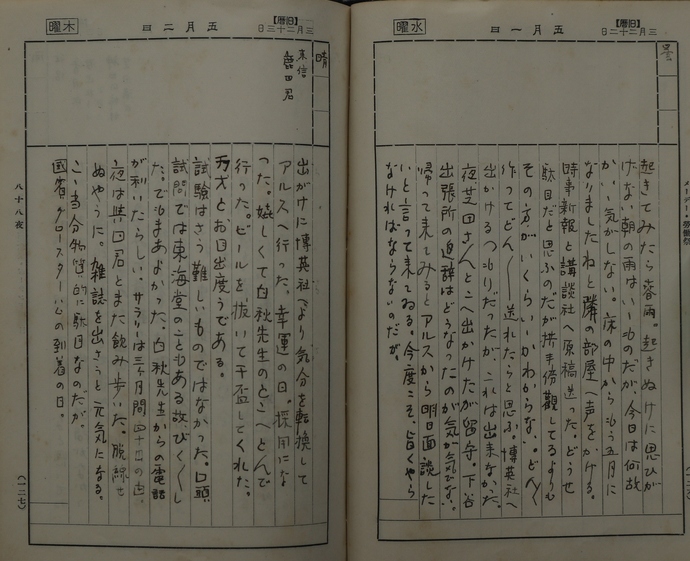 水曜
五月一日
【旧暦】三月二十二日
メーデー・労働祭
起きてみたら春雨。起きぬけに思ひが
けない朝の雨はいゝものだが、今日は何故
かいゝ気がしない。床の中からもう五月に
なりましたねと隣の部屋へ声をかける。
時事新報と講談社へ原稿送った。どうせ
駄目だと思ふのだが拱手傍観してるよりも
その方がいくらいゝかわからない。どん〱
作ってどん〱送れたらと思ふ。博英社へ
出かけるつもりだったが、これは出来なかった。
夜芝田さんとこへ出かけたが留守。下谷
出張所の返辞はどうなったのか気が気でない。
帰って来てみるとアルスから明日面談した
いと言って来てゐる。今度こそ、旨くやら
なければならないのだが。
木曜
五月二日
【旧暦】三月二十三日
晴
来信
鹿田君
出がけに博英社へより気分を転換して
アルスへ行った。幸運の日。採用にな
った。嬉しくて白秋先生のとこへとんで
行った。ビールを抜いて干盃してくれた。
万才とお目出度うである。
試験はさう難しいものではなかった。口頭
試問では東海堂のこともある故、びく〱し
た。でもまあよかった。白秋先生からの電話
が利いたらしい。サラリは三ヶ月間四十円の由。
夜は
君とまた飲み歩いた。脱線せ
ぬやうに。雑誌を出さうと元気になる。
こゝ当分物質的に駄目なのだが。
国賓グロースター公の到着の日。
八十八夜
(一二七)